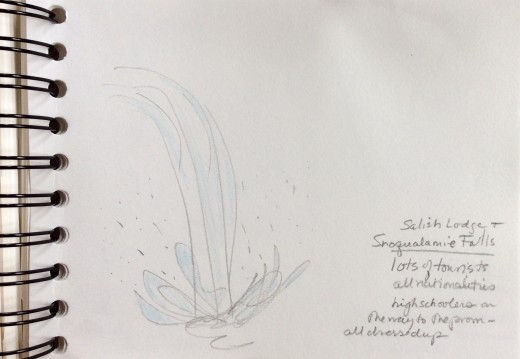 Salish Lodge +
Snoqualamie Falls
lots of tourists
all nationalities
highschoolers on
the way to the prom -
all dressed up